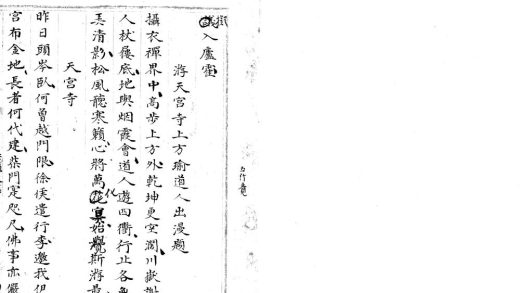 入廬霍
游天宮寺上方瑜道人出漫題
攝衣禪界中高步上方外乾坤更空濶川嶽
人杖屨底地與烟霞會道人遊四衢行止各無
美清影松風聽寒籟心將萬化冥始覺斯游最
天宮寺
昨日頭岑臥何曾越門限徐侯遣行李邀我伊
宮布金地長者何代建柴門定咫尺佛事亦嚴